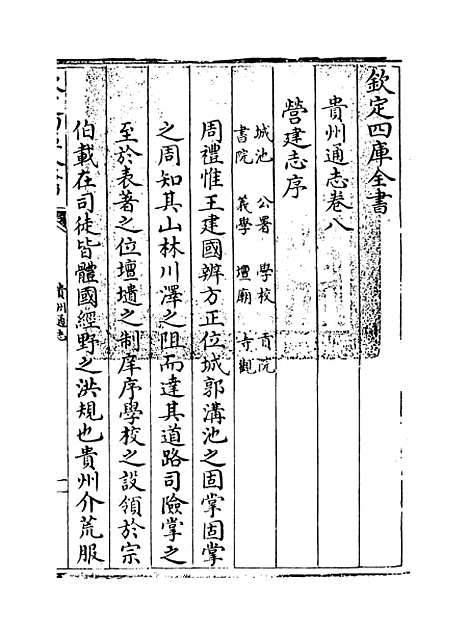 欽定四庫全書
貴州通志卷八
營建志序
城池 公署 學校 貢院
書院 義學 壇廟 寺觀
周禮惟王建國辨方正位城郭溝池之固掌固掌
之周知其山林川澤之阻而達其道路司險掌之
至於表著之位壇壝之制庠序學校之設領於宗
伯載在司徒皆體國經野之洪規也貴州介荒服
貴州通志